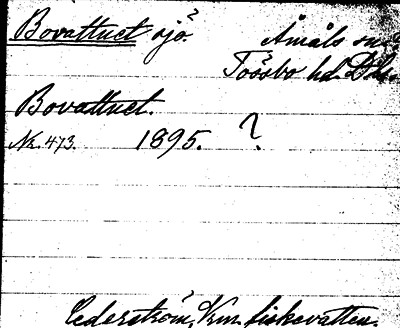 Bovattnet sjö?
Åmåls sn
Tössbo hd. Dls.
Bovattnet.
Nr. 473. 1895. ?
Cederström, Km. fiskevatten.